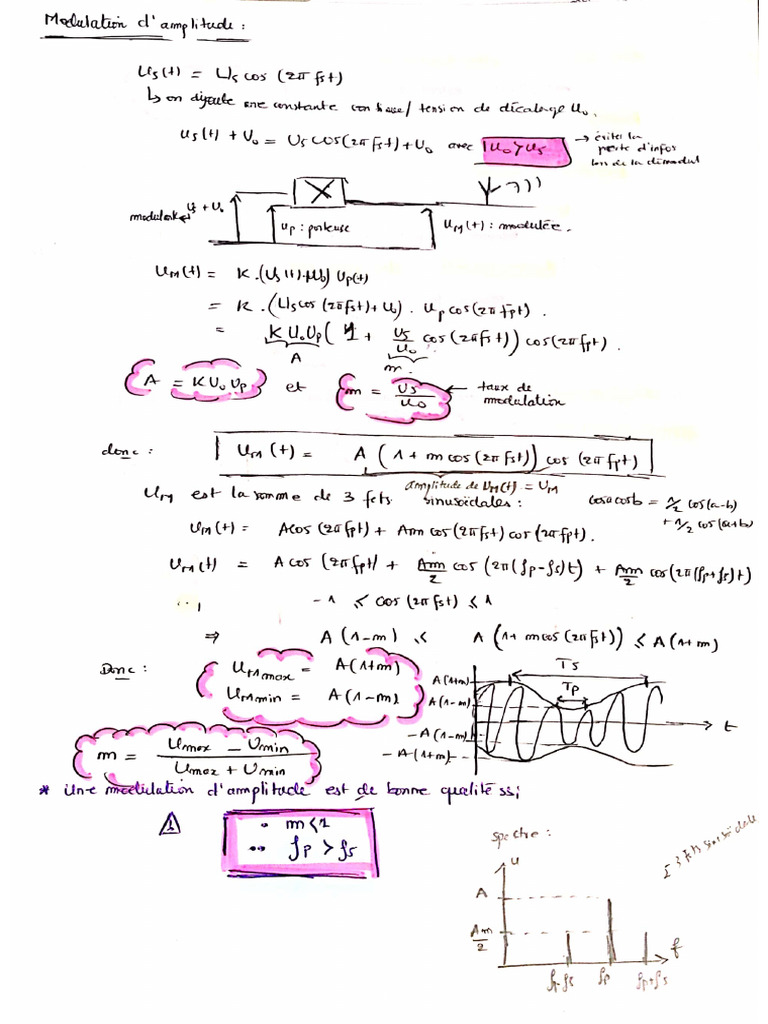 Modulation d'amplitude :
Us(t) = Us cos (2π fst)
↳ on djoute une constante continue/ tension de décalage U0.
us(t) + U0 = Us cos(2π fst) + U0 avec U0 > Us → éviter la
perte d'infos
lors de la démodul
modulante Us + U0
X
up : porteuse
UM(t) : modulée.
UM(t) = K.(Us(t)+U0) Up(t)
= K.(Us cos (2π fst) + U0) . Up cos(2π fpt).
= K U0 Up ( 1 + Us/U0 cos (2π fst)) cos(2π fpt).
A
m.
A = K U0 Up et m = Us/U0 ← taux de
modulation
donc : UM(t) = A (1 + m cos (2π fst)) cos (2π fpt)
amplitude de UM(t) = UM
UM est la somme de 3 fcts sinusoïdales : cosa cosb = 1/2 cos(a-b)
+ 1/2 cos(a+b)
UM(t) = A cos (2π fpt) + Am cos(2π fst) cos (2π fpt).
UM(t) = A cos (2π fpt) + Am/2 cos (2π(fp-fs)t) + Am/2 cos(2π(fp+fs)t)
-1 ≤ cos (2π fst) ≤ 1
⇒ A(1-m) ≤ A(1+ m cos(2π fst)) ≤ A(1+m)
Donc : UMmax = A(1+m)
UMmin = A(1-m)
Ts
Tp
A(1+m)
A(1-m)
-A(1-m)
-A(1+m)
t
m = Umax - Umin / Umax + Umin
* Une modulation d'amplitude est de bonne qualité ssi
⚠
• m<1
•• fp > fs
spectre :
Σ 3 fcts sinusoïdale
u
A
Am/2
fp-fs fp fp+fs f